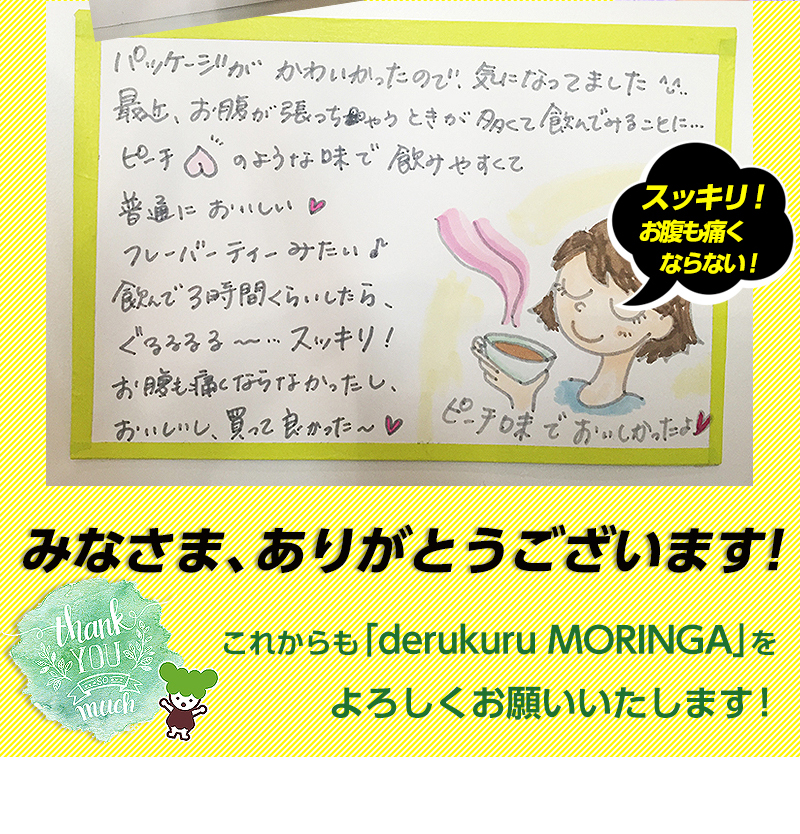 パッケージが かわいかったので、気になってました
最近、お腹が張っちゃうときが多くて飲んでみることに…
ピーチ のような味で 飲みやすくて
普通に おいしい
フレーバーティーみたい♪
飲んで3時間くらいしたら、
ぐるるるる〜… スッキリ!
お腹も痛くならなかったし、
おいしいし、買って良かった〜
スッキリ!
お腹も痛く
ならない!
ピーチ味で おいしかったよ
みなさま、ありがとうございます!
thank
YOU
SO
much
これからも「derukuru MORINGA」を
よろしくお願いいたします!